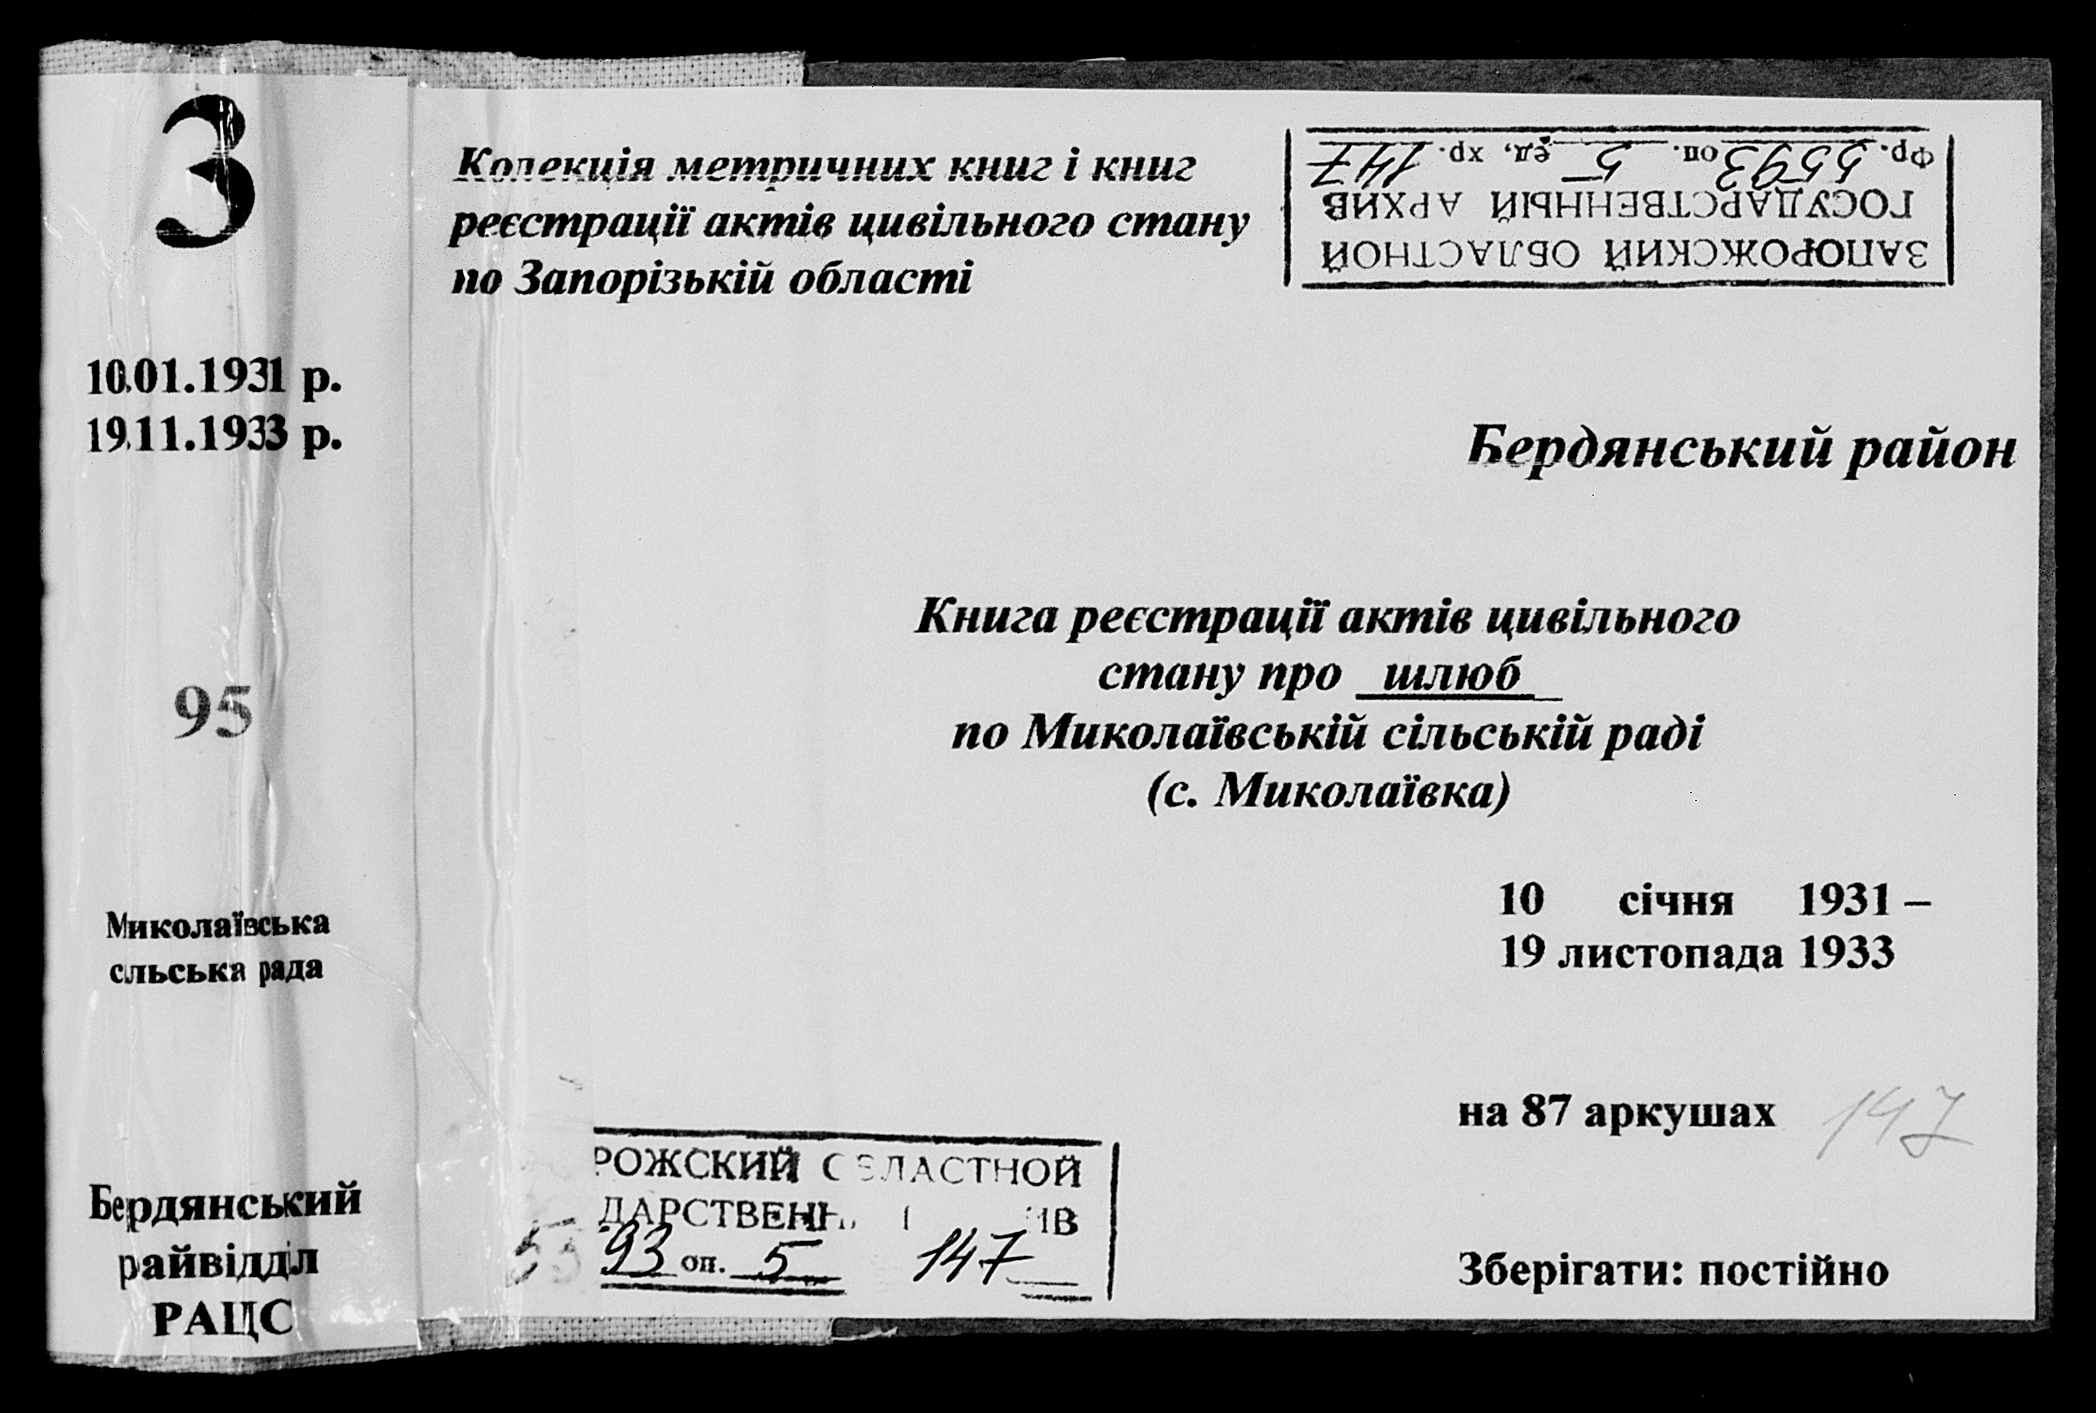 3
10.01.1931 р.
19.11.1933 р.
95
Миколаївська
сільська рада
Бердянський
райвідділ
РАЦС
Колекція метричних книг і книг
реєстрації актів цивільного стану
по Запорізькій області
ЗАПОРОЖСКИЙ ОБЛАСТНОЙ
ГОСУДАРСТВЕННЫЙ АРХИВ
Фр. 5593 оп. 5 ед. хр. 147
Бердянський район
Книга реєстрації актів цивільного
стану про шлюб
по Миколаївській сільській раді
(с. Миколаївка)
10 січня 1931 –
19 листопада 1933
на 87 аркушах 147
РОЖСКИЙ ОБЛАСТНОЙ
ДАРСТВЕНН ИВ
5593 оп. 5 147
Зберігати: постійно